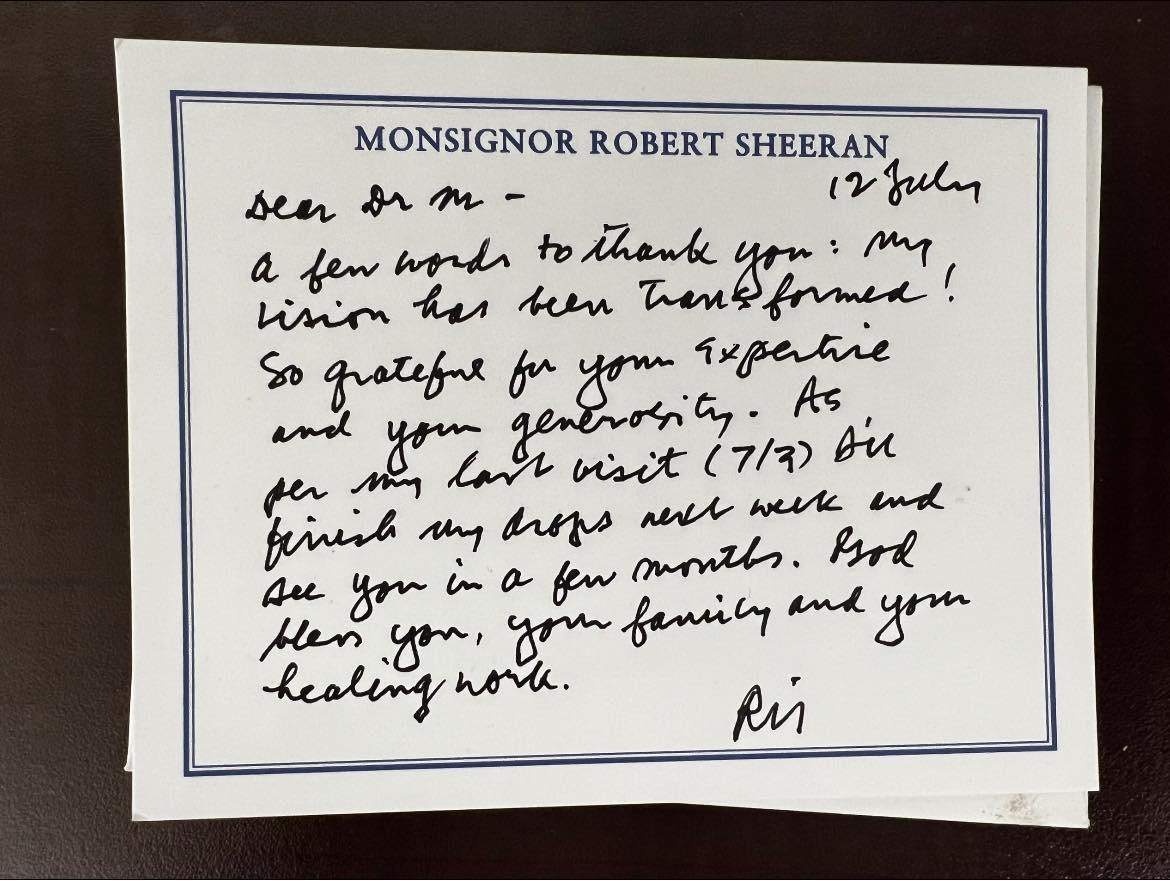 MONSIGNOR ROBERT SHEERAN
12 July
Dear Dr M -
A few words to thank you: My
vision has been transformed!
So grateful for your expertise
and your generosity. As
per my last visit (7/3) I'll
finish my drops next week and
see you in a few months. God
bless you, your family and your
healing work.